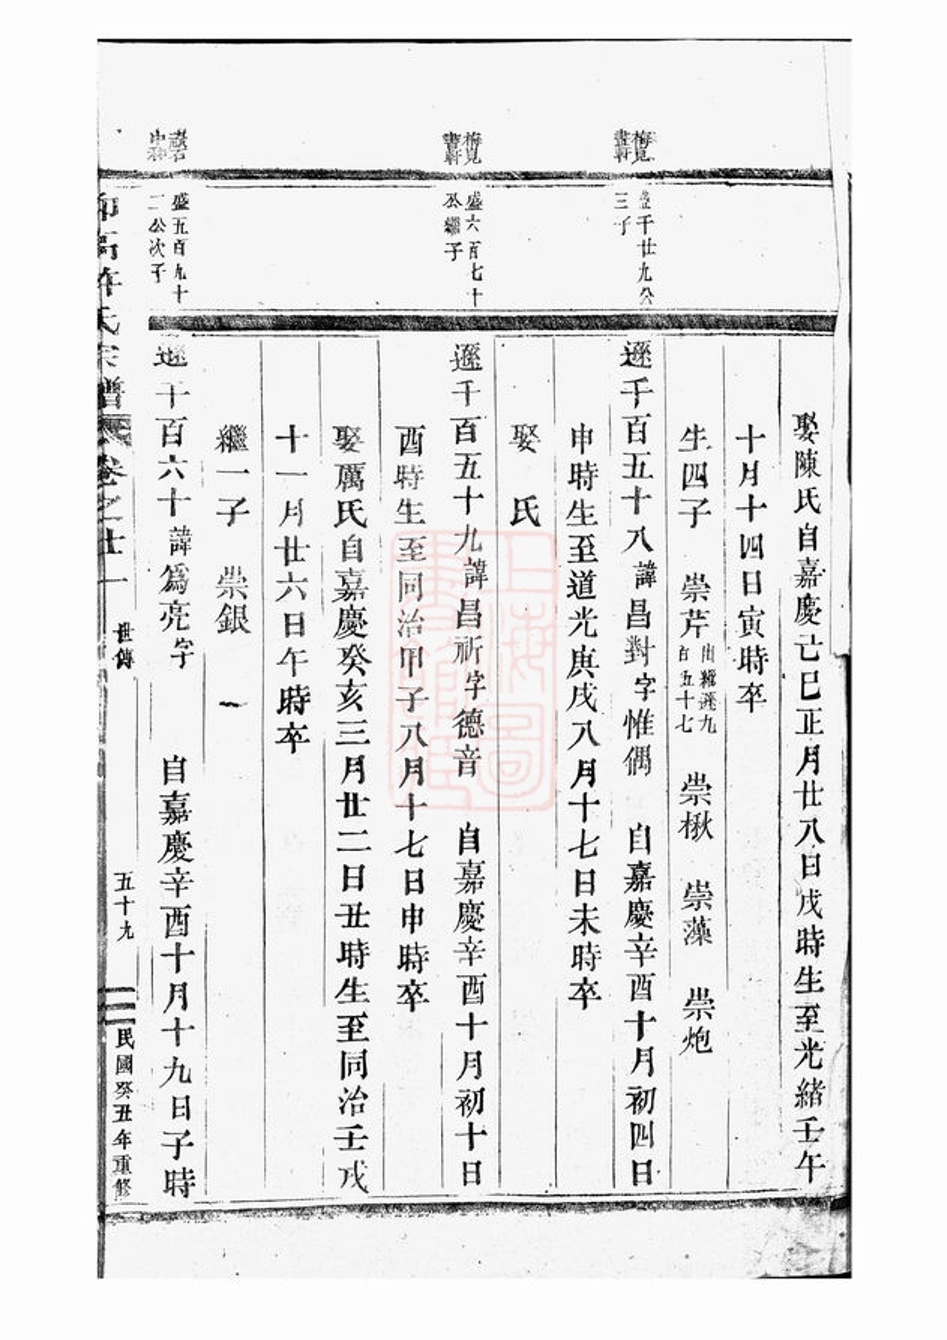 娶陳氏自嘉慶己巳正月廿八日戌時生至光緒壬午
十月十四日寅時卒
生四子 崇芹 出繼遜九百五十七 崇楸 崇藻 崇炮
梅見書軒
盛千廿九公三子
遜千百五十八諱昌對字惟偶 自嘉慶辛酉十月初四日
申時生至道光庚戌八月十七日未時卒
娶 氏
梅見書軒
盛六百七十公繼子
遜千百五十九諱昌祈字德音 自嘉慶辛酉十月初十日
酉時生至同治甲子八月十七日申時卒
娶厲氏自嘉慶癸亥三月廿二日丑時生至同治壬戌
十一月廿六日午時卒
繼一子 崇銀
盛五百九十二公次子
遜千百六十諱為亮字 自嘉慶辛酉十月十九日子時
許氏宗譜 卷之廿一 世傳 五十九 民國癸丑年重修
上海圖書館藏